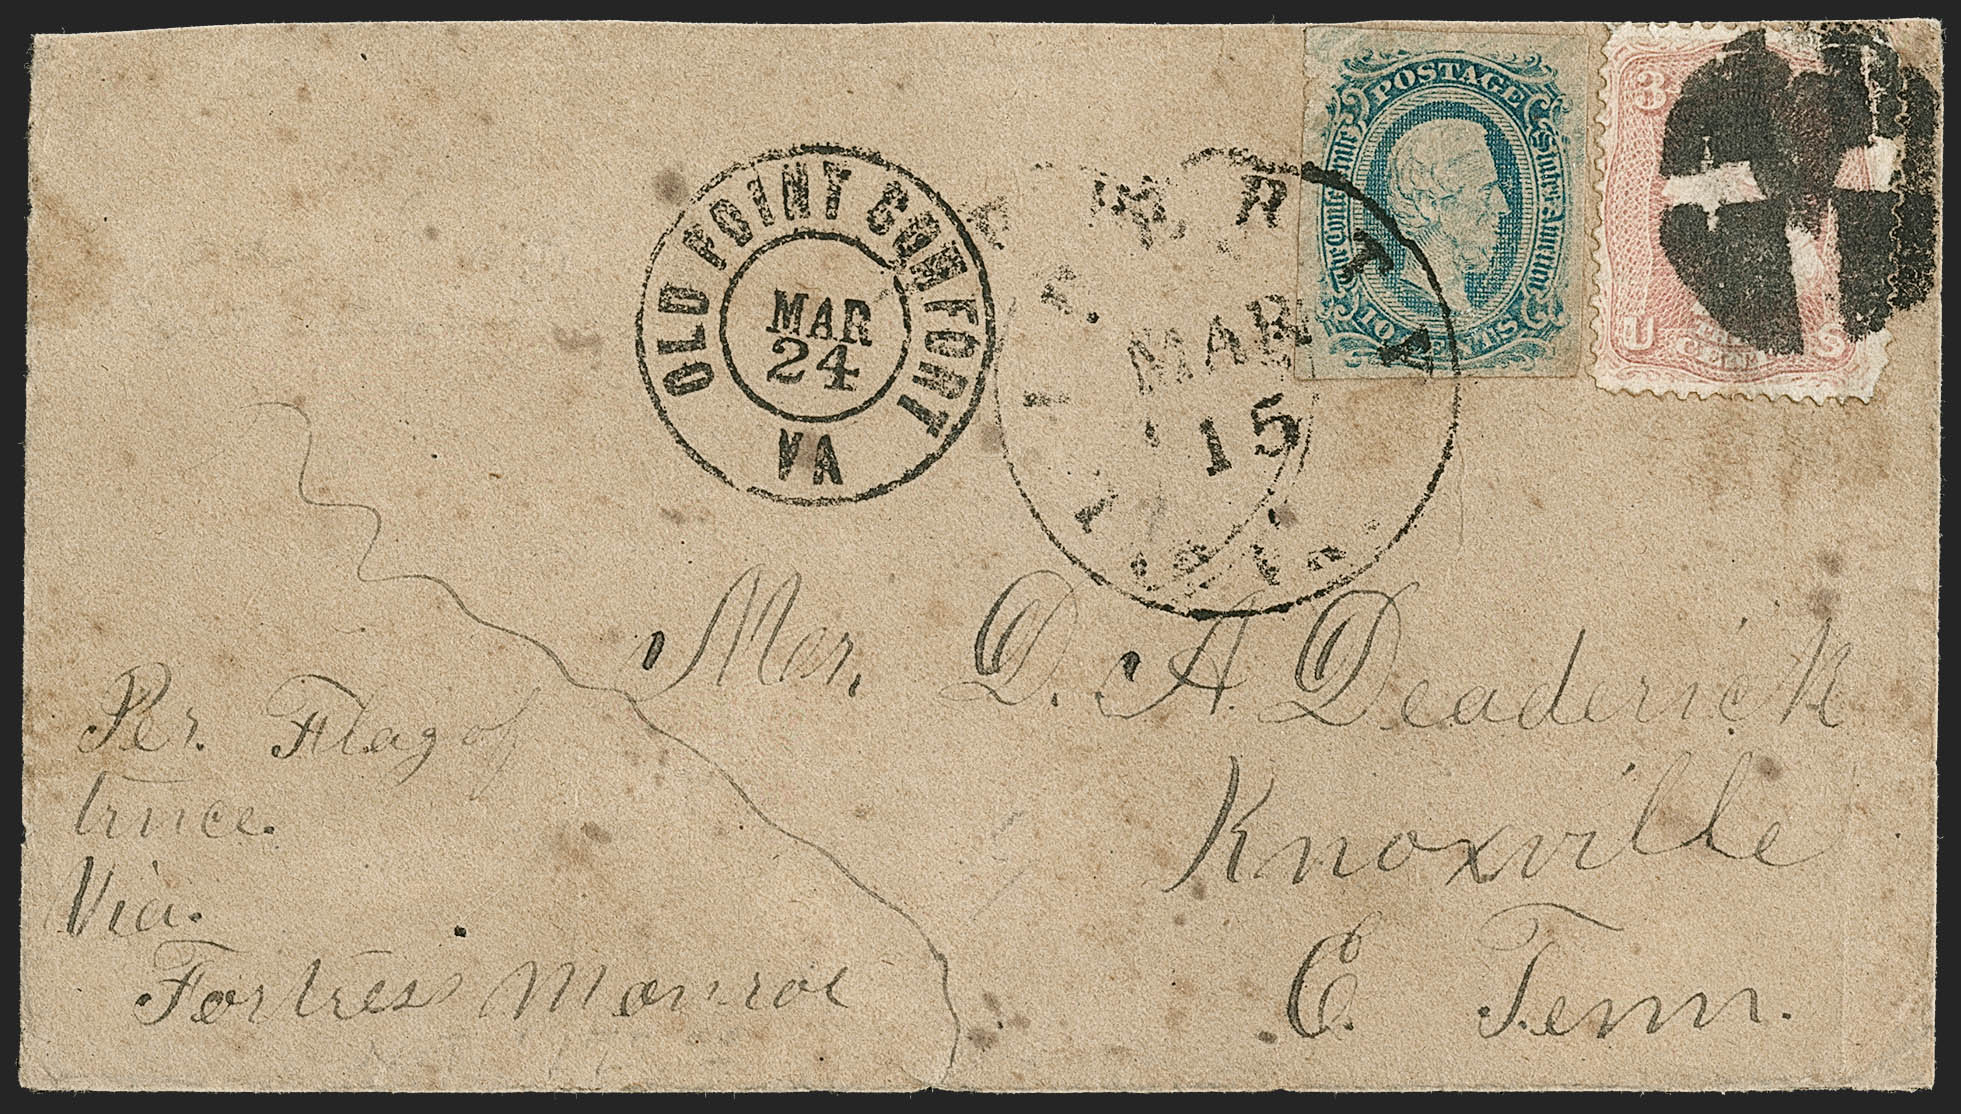 POSTAGE
The Confederate States of America
10 CENTS
3
U S
CENTS
OLD POINT COMFORT
MAR
24
VA
MAR
15
Mr. D. A. Deaderick
Knoxville
E. Tenn.
Per. Flag of
truce.
Via.
Fortress Monroe